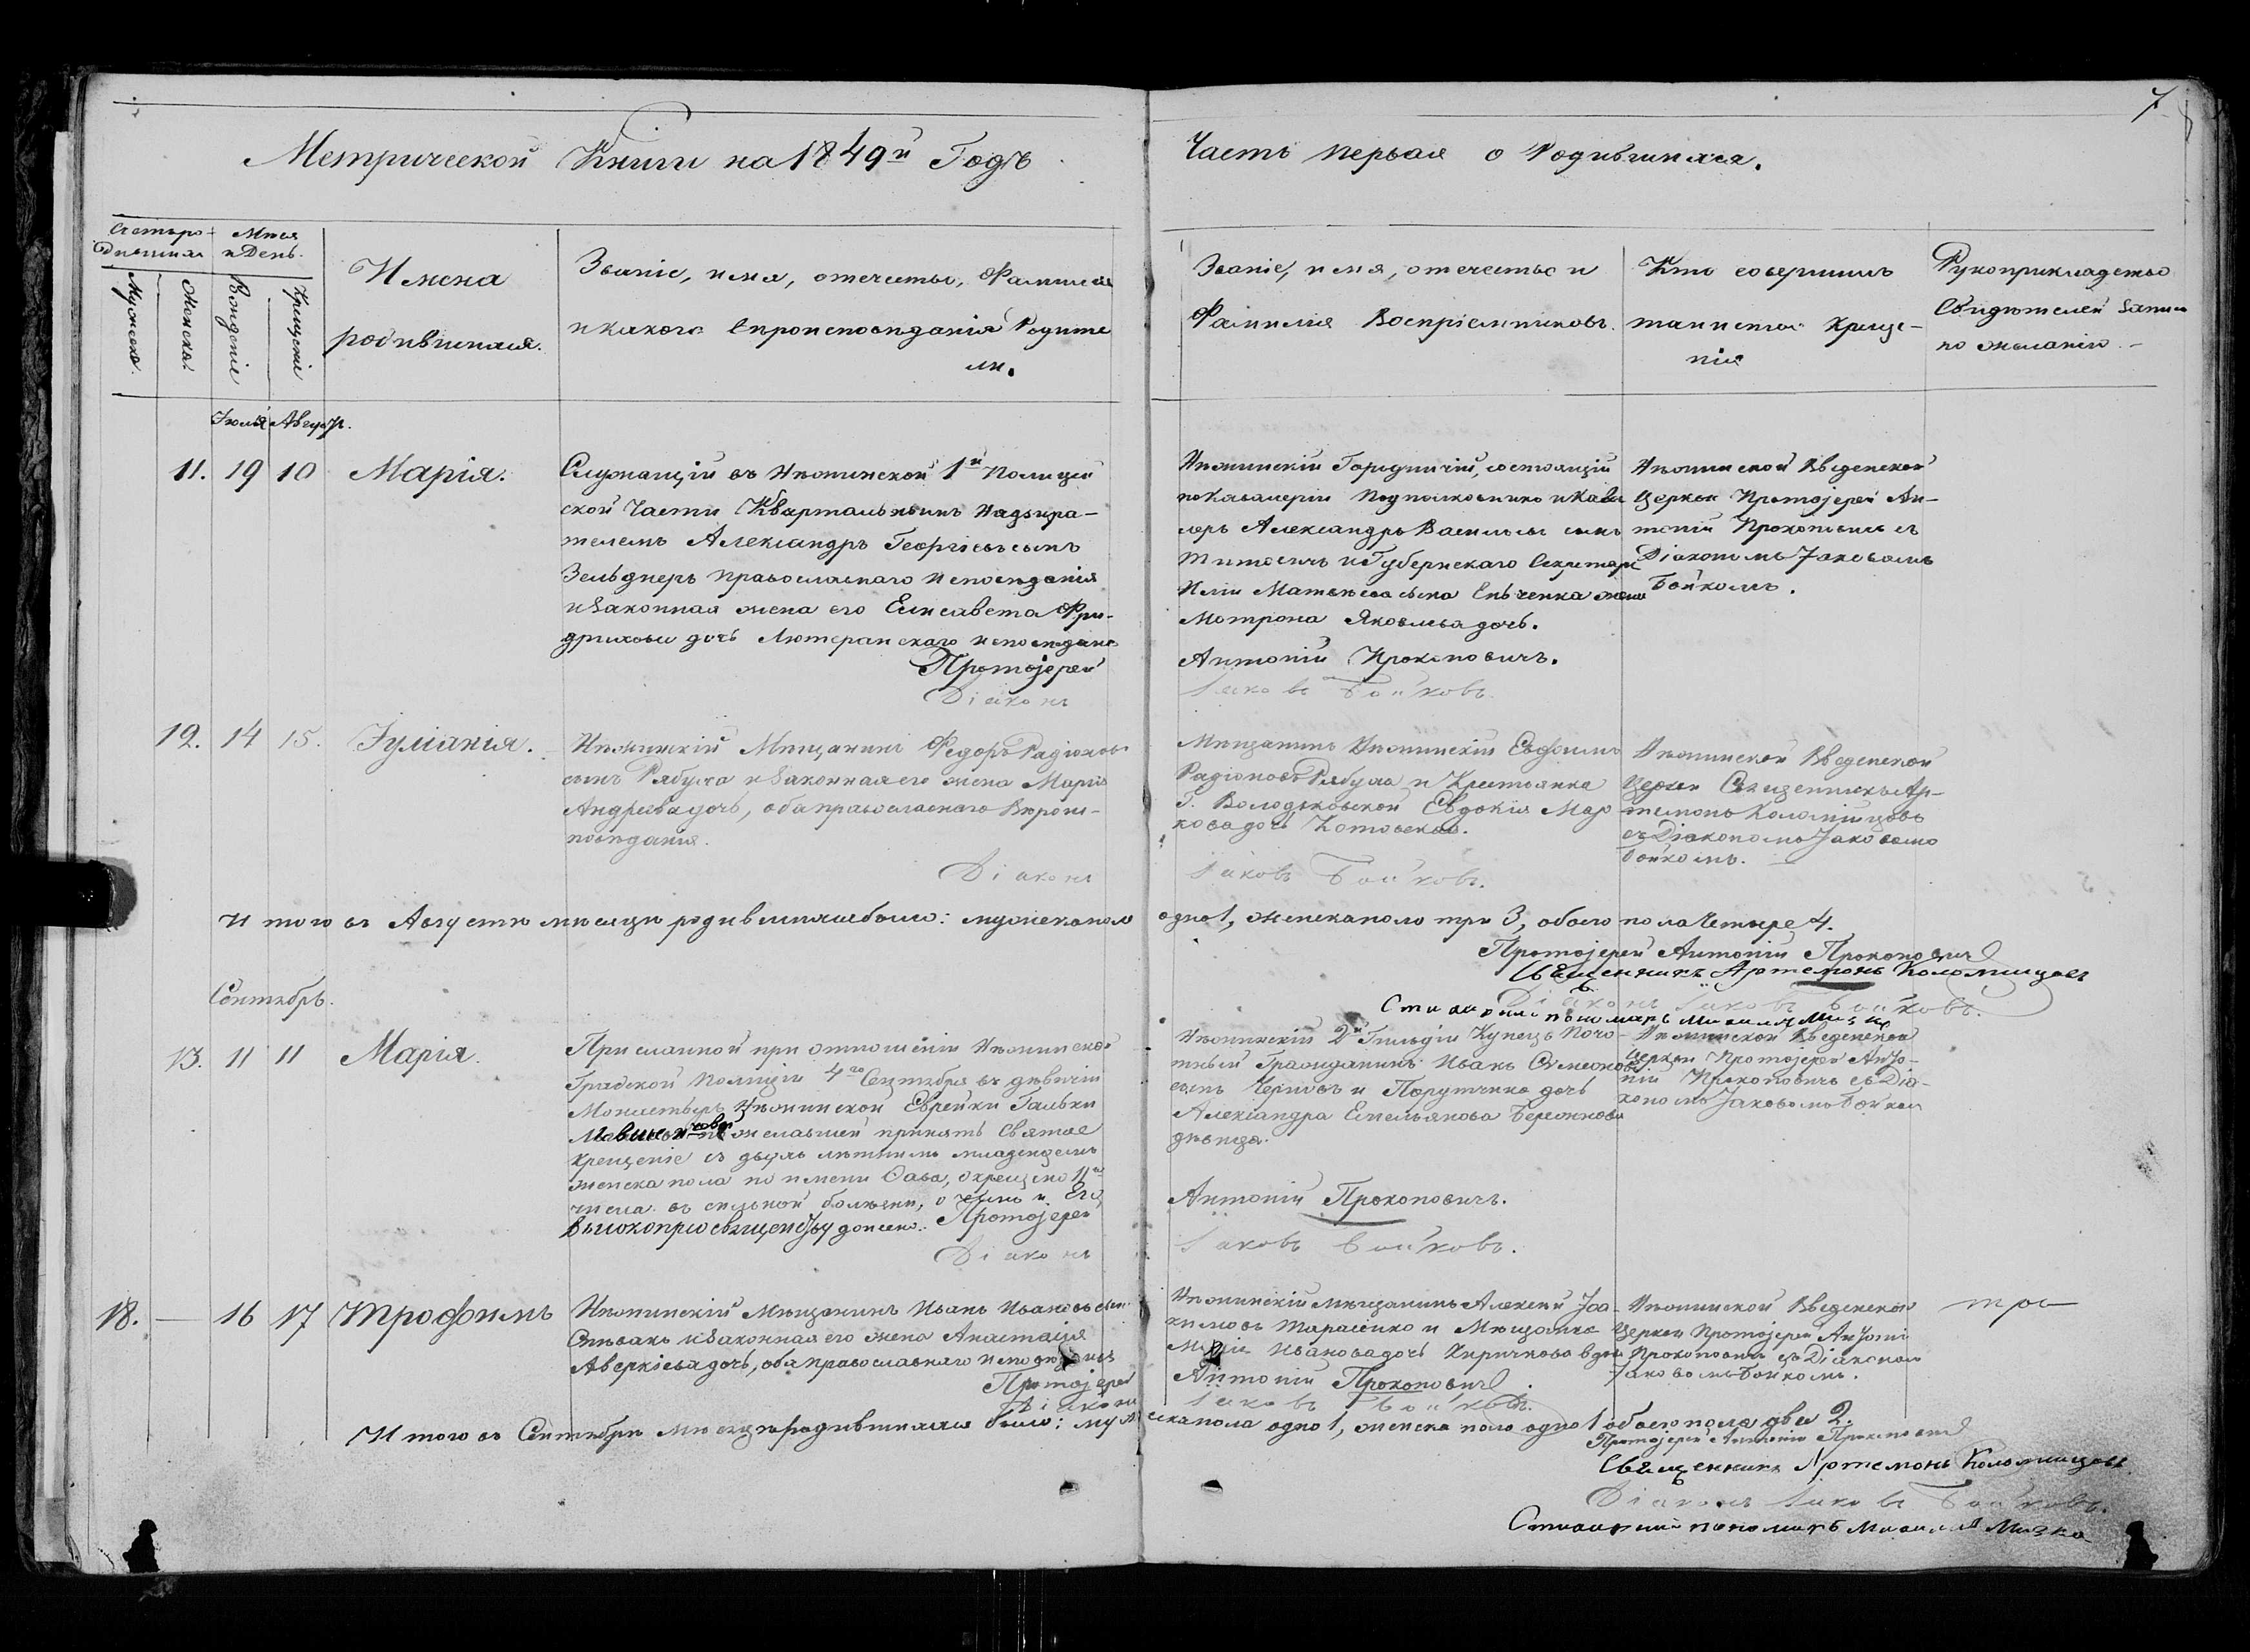 7
Метрической Книги на 1849й Годъ
Часть первая о Родившихся.
Счетъ родившихся
Мужеска
Женска
Мѣсяцъ и День.
Рожденiя
Крещенiя
Имена
родившихся.
Званiе, имя, отечество, Фамилiя
и какого Вѣроисповѣданiя Родите
ли.
Званiе, имя, отечество и
Фамилiя Воспрiемниковъ.
Кто совершилъ
таинство Креще-
нiя
Рукоприкладство
Свидѣтелей записи
по желанiю.
Iюля Август.
11. 19 10 Марiя.
Служащiй въ Нѣжинской 1й Полицей
ской Части Квартальнымъ Надзира-
телемъ Александръ Георгiевъ сынъ
Зельднеръ православнаго исповѣданiя
и законная жена его Елисавета Фри-
дрихова дочь Лютеранскаго исповѣданiя
Протоiерей
Дiаконъ
Нѣжинскiй Городничiй, состоящiй
по Кавалерiи Подполковникъ и Кава
леръ Александръ Васильевъ сынъ
и Губернскаго Секретаря
жена
Мотрона Яковлева дочь.
Антонiй Прокоповичъ.
Iаковъ Бойковъ.
Нѣжинской Введенской
Церкви Протоiерей Ан-
тонiй Прокоповичъ съ
Дiакономъ Iаковомъ
Бойкомъ.
12. 14 15. Iулiанiя.
Нѣжинскiй Мѣщанинъ Федоръ Радiоновъ
сынъ Рябуха и законная его жена Марiя
Андреева дочь, оба православнаго Вѣроис-
повѣданiя.
Дiаконъ
Мѣщанинъ Нѣжинскiй Евфимъ
Радiоновъ Рябуха и Крестьянка
Г. Володьковской Евдокiя Мар
кова дочь Котовская.
Iаковъ Бойковъ.
Нѣжинской Введенской
Церкви Священникъ Ар-
темонъ Коломiйцовъ
съ Дiакономъ Iаковомъ
Бойкомъ.
Итого въ Августѣ мѣсяцѣ родившихся было: мужеска пола одно 1, женска пола три 3, обоего пола Четыре 4.
Протоiерей Антонiй Прокоповичъ
Священникъ Артемонъ Коломiйцовъ
Дiаконъ Iаковъ Бойковъ.
Стихарний пономарь Михаилъ Мизко
Сентябрь.
13. 11 11 Марiя.
Присланной при отношенiи Нѣжинской
Градской Полицiи 4го Сентября въ дѣвичiй
Монастырь Нѣжинской Еврейки Гальки
желавшей принять Святое
Крещенiе съ двухъ лѣтнимъ младенцемъ
женска пола по имени Хава, окрещено 11го
числа въ сильной болѣзни, о чемъ и Его
Высокопреосвященству донесено. Протоiерей
Дiаконъ
Нѣжинскiй 2й Гильдiи Купецъ Почо
тный Гражданинъ Иванъ Симеоновъ
сынъ Черновъ и Поручика дочь
Александра Емельянова Бережнова
дѣвица.
Антонiй Прокоповичъ.
Iаковъ Бойковъ.
Нѣжинской Введенской
Церкви Протоiерей Анто-
нiй Прокоповичъ съ Дiа-
кономъ Iаковомъ Бойком
18. — 16 17 Трофимъ
Нѣжинскiй Мѣщанинъ Иванъ Ивановъ сынъ
Спѣвакъ и законная его жена Анастасiя
Аверкiева дочь, оба православнаго исповѣданiя
Протоiерей
Дiаконъ
Нѣжинскiй мѣщанинъ Алексей Iоа-
кимовъ Тарасенко и Мѣщанка
Марiя Иванова дочь Киричкова вдова
Антонiй Прокоповичъ.
Iаковъ Бойковъ.
Нѣжинской Введенской
Церкви Протоiерей Антонiй
Прокоповичъ съ Дiакономъ
Iаковомъ Бойкомъ.
Итого въ Сентябрѣ мѣсяцѣ родившихся было: мужеска пола одно 1, женска пола одно 1 обоего пола два 2.
Протоiерей Антонiй Прокоповичъ
Священникъ Артемонъ Коломiйцовъ
Дiаконъ Iаковъ Бойковъ.
Стихарний пономарь Михаилъ Мизко